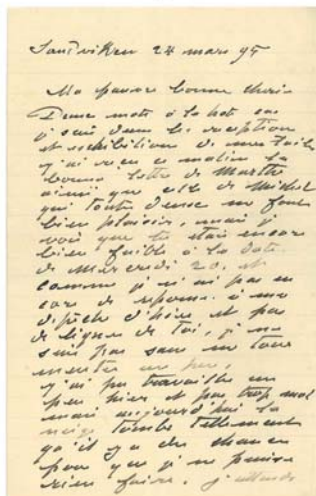 Sandviken 24 mars 95
Ma pauvre bonne chérie
Deux mots à la hâte car
je suis dans les réception
et exhibition de mes toiles
j'ai reçu ce matin la
bonne lettre de Marthe
ainsi que celle de Michel
qui toute deux me font
bien plaisir, mais je
vois que tu étais encore
bien faible à la date
de Mercredi 20. et
comme je n'ai pas en
core de réponse à ma
dépêche d'hier et pas
de lignes de toi, je ne
suis pas sans me tour
menter un peu.
j'ai pu travailler un
peu hier et pas trop mal
mais aujourd'hui la
neige tombe tellement
qu'il y a des chances
pour que je ne puisse
rien faire. j'attends